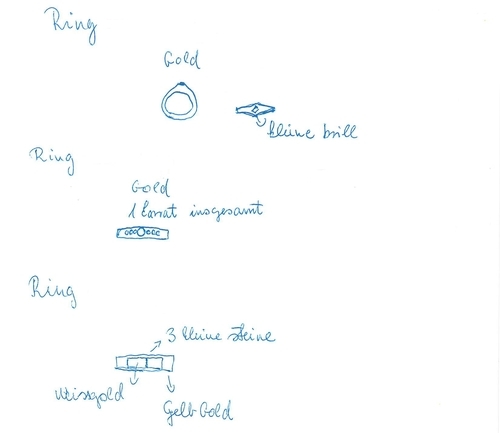 Ring
Gold
kleine brill
Ring
Gold
1 karat insgesamt
Ring
3 kleine steine
Weissgold
Gelb Gold